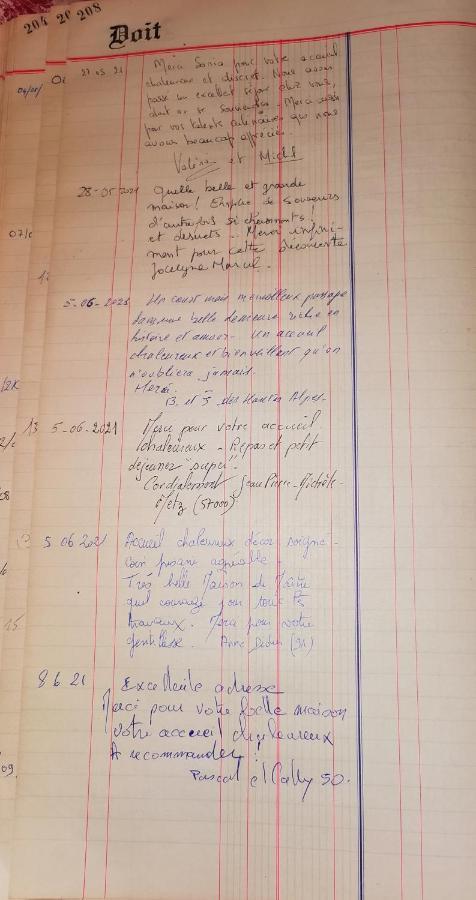 204 20 208
Doit
27.05.21 Merci Sonia pour votre accueil
chaleureux et discret. Nous avons
passé un excellent séjour chez vous,
dont on se souviendra. Merci aussi
pour vos talents culinaires que nous
avons beaucoup appréciés.
Valérie et Michel
28-05-2021 Quelle belle et grande
maison! Emplie de souvenirs
d'autrefois si charmants!
et désuets.. Merci infini-
ment pour cette découverte
Jocelyne Marcel.
5-06-2021 Un court mais merveilleux passage
dans une belle demeure riche en
histoire et amour. Un accueil
chaleureux et bienveillant qu'on
n'oubliera jamais.
Merci.
B et J des Hautes Alpes.
13 5-06-2021 Merci pour votre accueil
chaleureux - Repas et petit
déjeuner "super".
Cordialement Jean Pierre - Michèle -
Metz (57000)
5 06 2021 Accueil chaleureux décor soigné -
coin piscine agréable -
Très belle Maison de Maître
quel courage pour tous ces
travaux. Merci pour votre
gentillesse. Anne Didier (91)
8 6 21 Excellente adresse
Merci pour votre belle maison
votre accueil chaleureux
A recommander !
Pascal et Cathy 50.